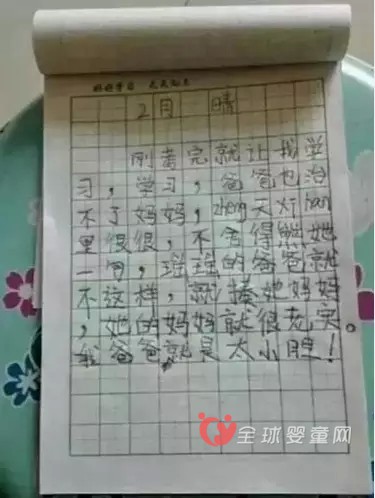 好好学习 天天向上
2月 晴
刚考完就让我学
习，学习，爸爸也治
不了妈妈，zheng天灯han
里很很，不舍得熊她
一句，瑶瑶的爸爸就
不这样，就揍她妈妈
，她的妈妈就很老实。
我爸爸就是太小胆！
全球婴童网